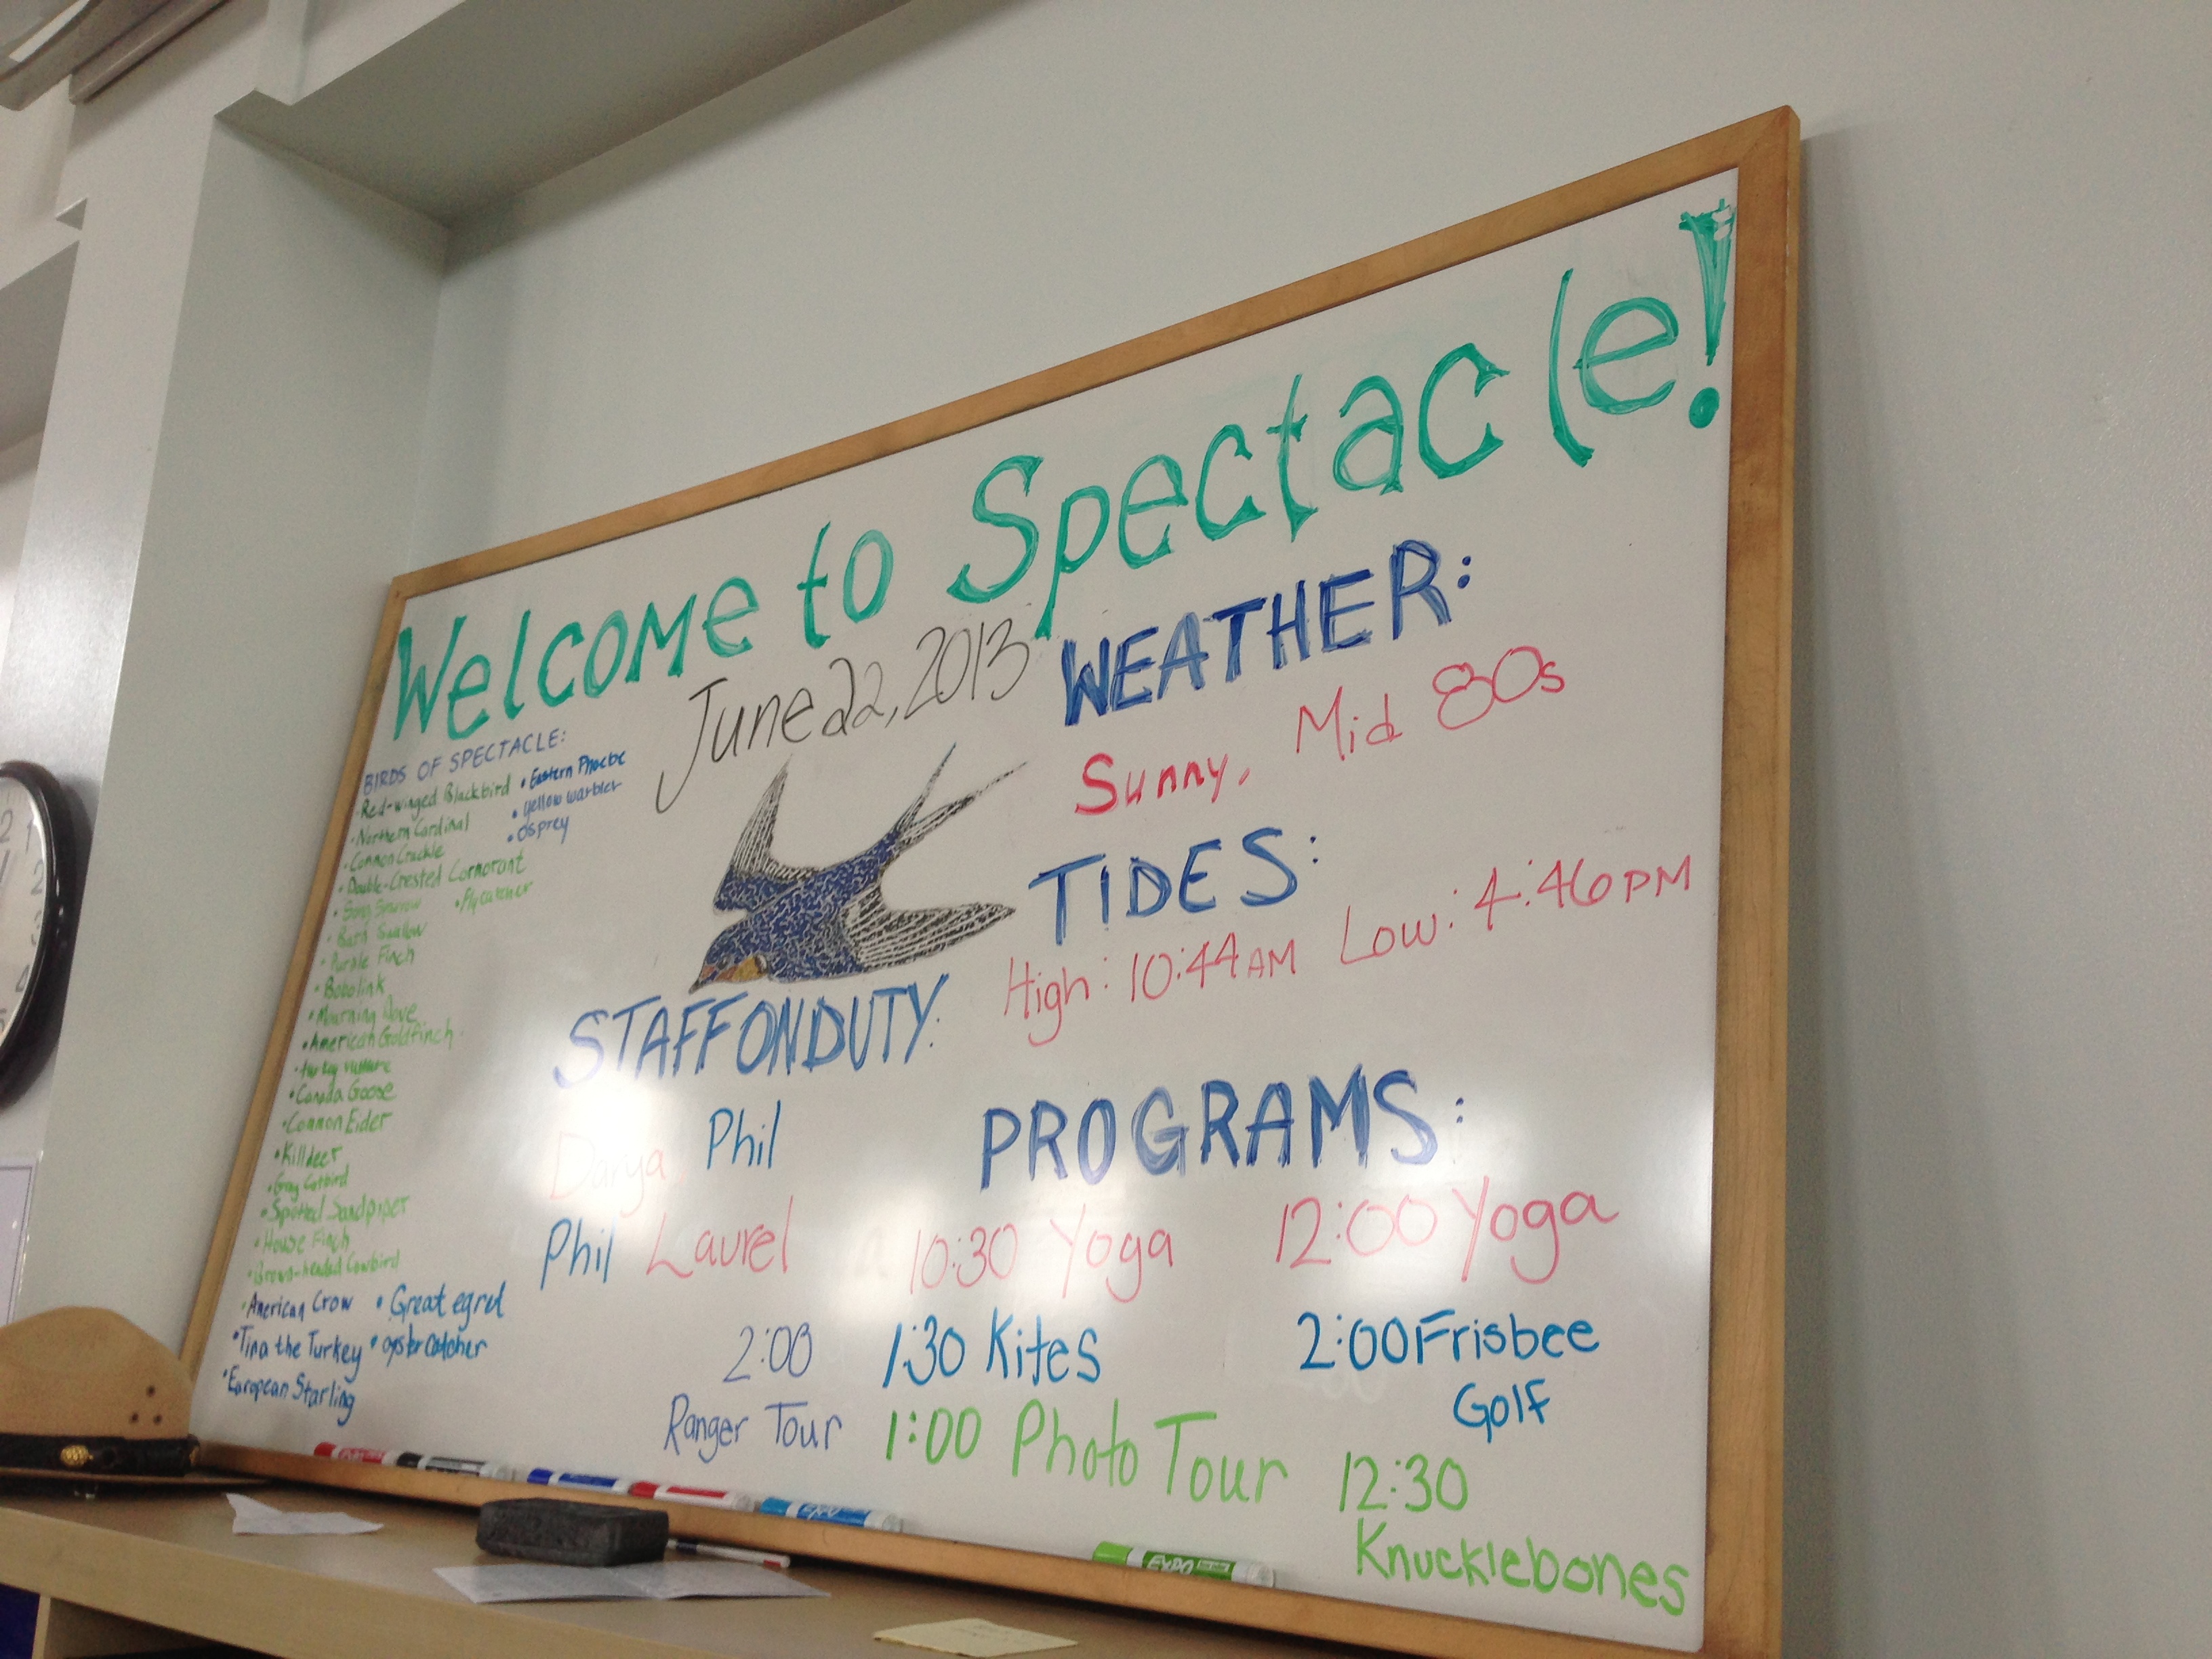 Welcome to Spectacle!
June 22, 2013
BIRDS OF SPECTACLE:
Red-winged Blackbird
• Northern Cardinal
• Common Grackle
• Double-Crested Cormorant
• Song Sparrow
• Barn Swallow
• Purple Finch
• Bobolink
• Mourning Dove
• American Goldfinch
• turkey vulture
• Canada Goose
• Common Eider
• Killdeer
• Gray Catbird
• Spotted Sandpiper
• House Finch
• Brown-headed Cowbird
• American Crow
• Tina the Turkey
• European Starling
• Eastern Phoebe
• yellow warbler
• osprey
• Flycatcher
• Great egret
• oystercatcher
WEATHER:
Sunny, Mid 80s
TIDES:
High: 10:44AM Low: 4:46PM
STAFF ON DUTY:
Darya Phil
Phil Laurel
PROGRAMS:
10:30 Yoga 12:00 Yoga
2:00
Ranger Tour
1:30 Kites
2:00 Frisbee
Golf
1:00 Photo Tour
12:30
Knucklebones
EXPO
EXPO
1
2
3
4